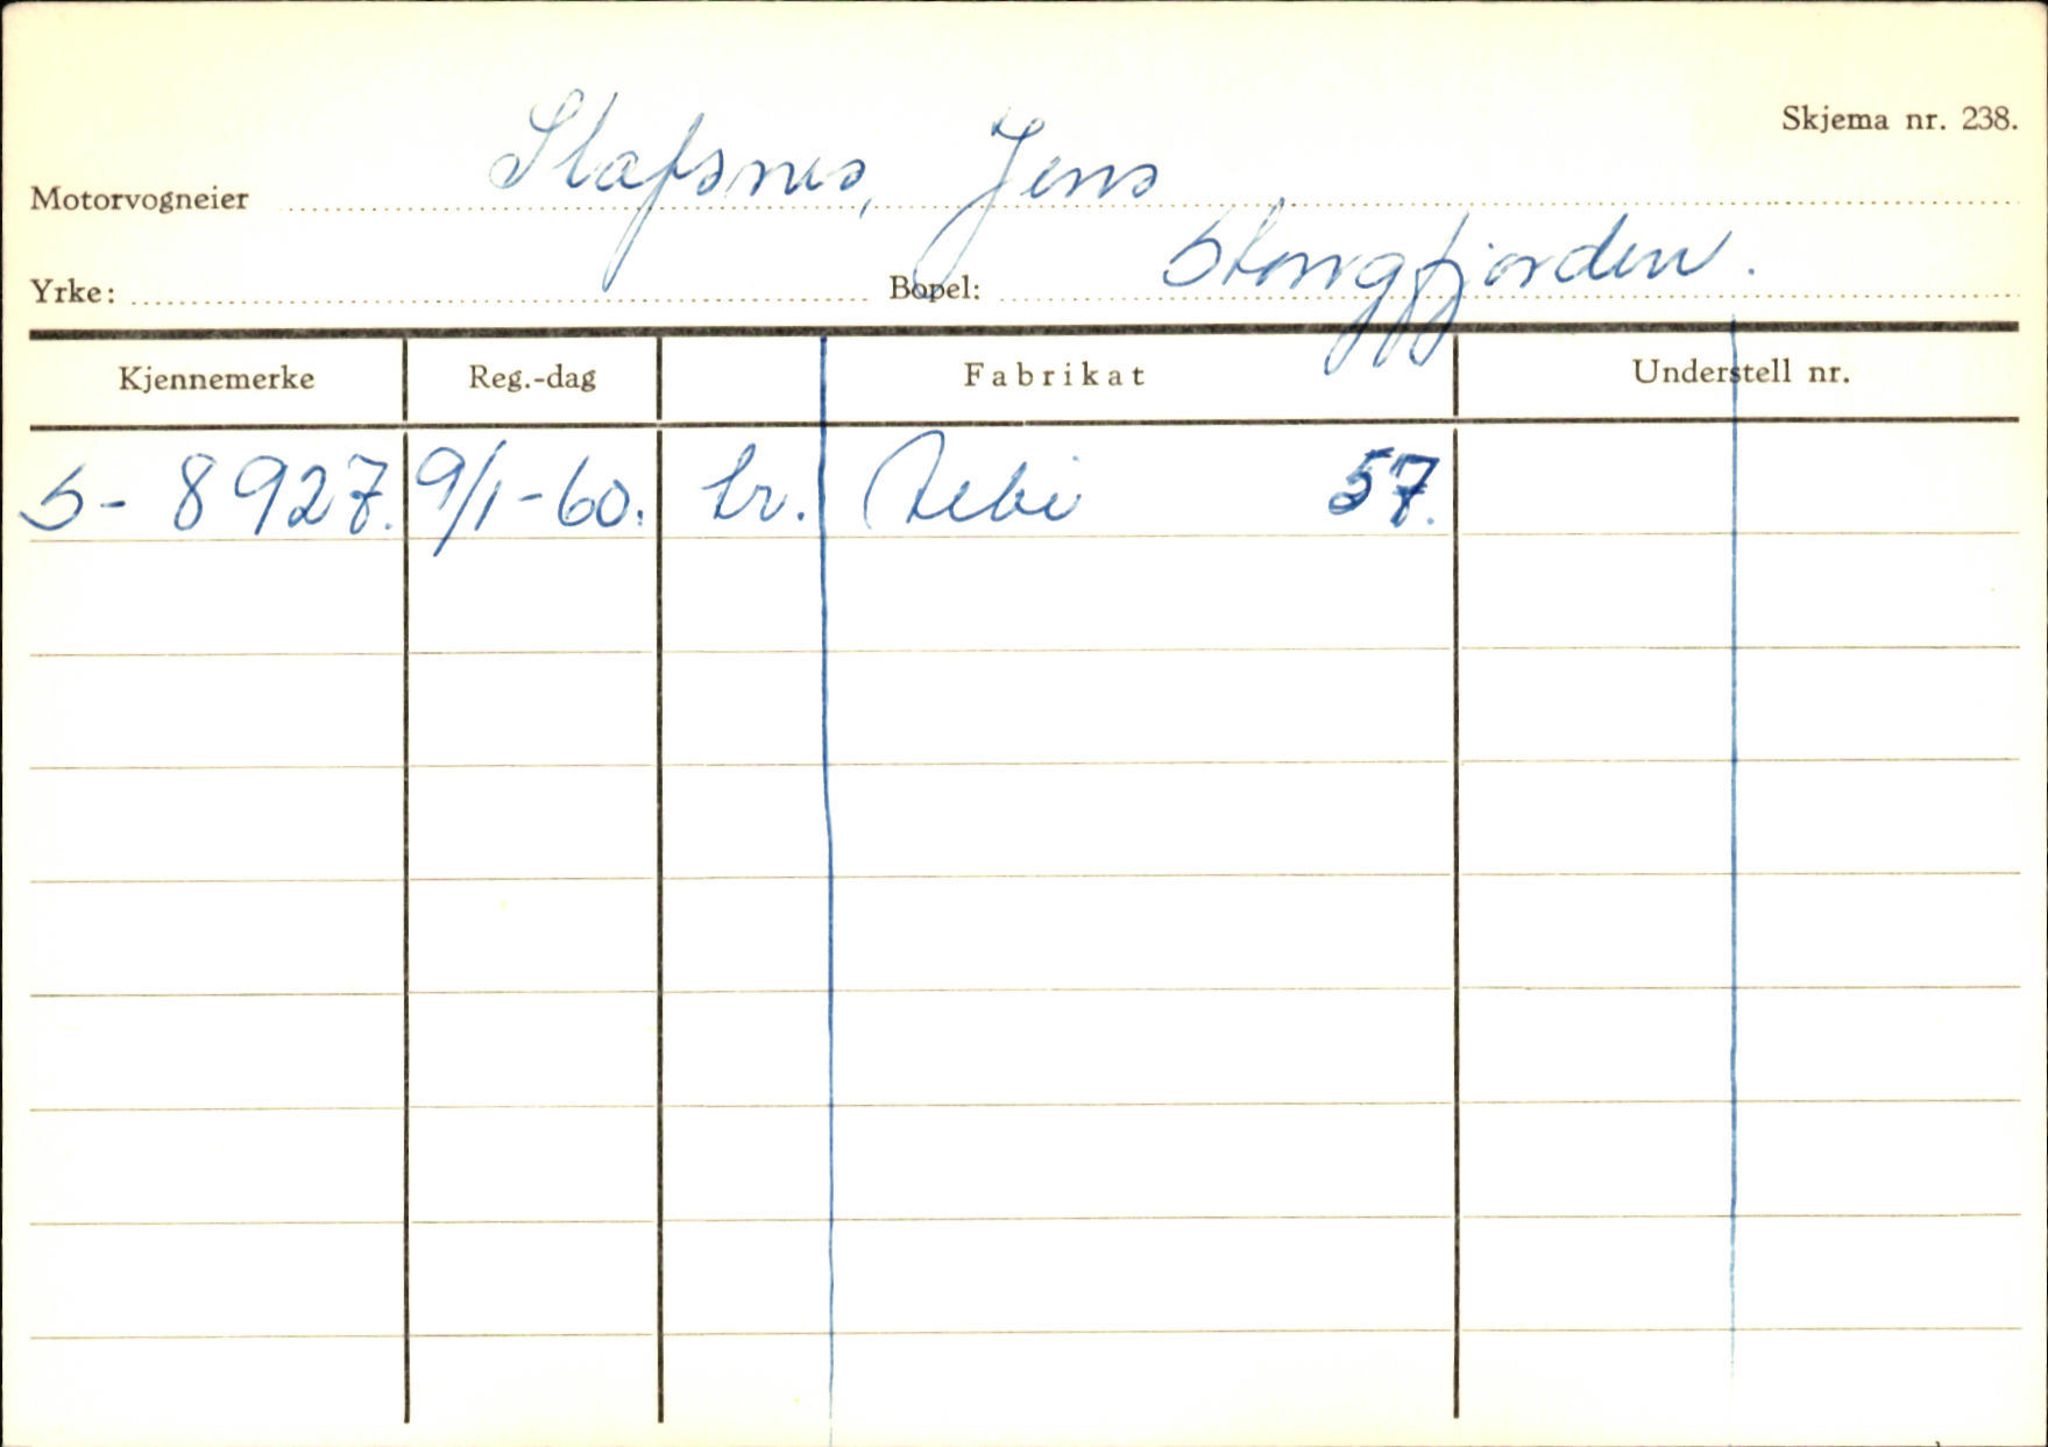 Skjema nr. 238.
Motorvogneier Stafsnes, Jens
Yrke: Bopel: Stongfjorden.
Kjennemerke Reg.-dag Fabrikat Understell nr.
S- 8927. 9/1-60. tr. Aebi 57.